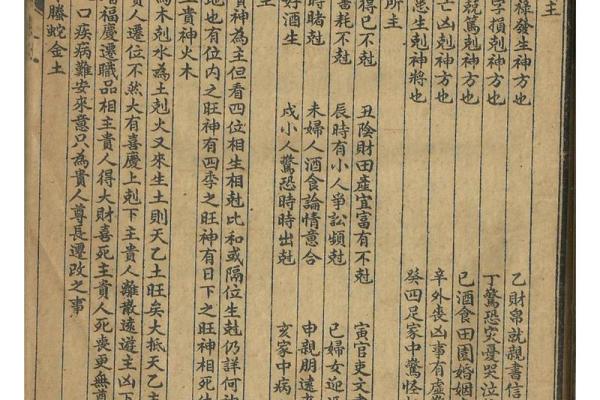 主
祿發生神方也 乙財帛就親書信
字損剋神方也 丁驚恐災憂哭泣
競篤剋神方也 己酒食田園婚姻
亡凶剋神方也 辛外喪凶事有虛
惡生剋神將也 癸四足家中驚怪
所主
得已不剋 丑陰財田產宜富有不剋 寅官吏文書
畜耗不剋 辰時有小人爭訟頻剋 巳婦女迎
時賭剋 未婦人酒食論情意合 申親朋遠
好酒生 戌小人驚恐時時出剋 亥家中病
主
貴神為主但看四位相生相剋比和或隔位生剋仍詳何
地也有位內之旺神有四季之旺神有日下之旺神相死
貴神火木
為木剋水為土剋火又來生土則天乙土旺矣大抵天乙主
貴人遷位不然大有喜慶上剋下主貴人離散遠遊主凶下
增福慶遷職品相主貴人得大財喜死主貴人死喪更無
口疾病難安來意只為貴人尊長遷改之事
螣蛇金土